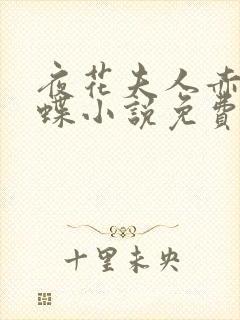 夜花夫人赤
蝶小說免費
十里未央